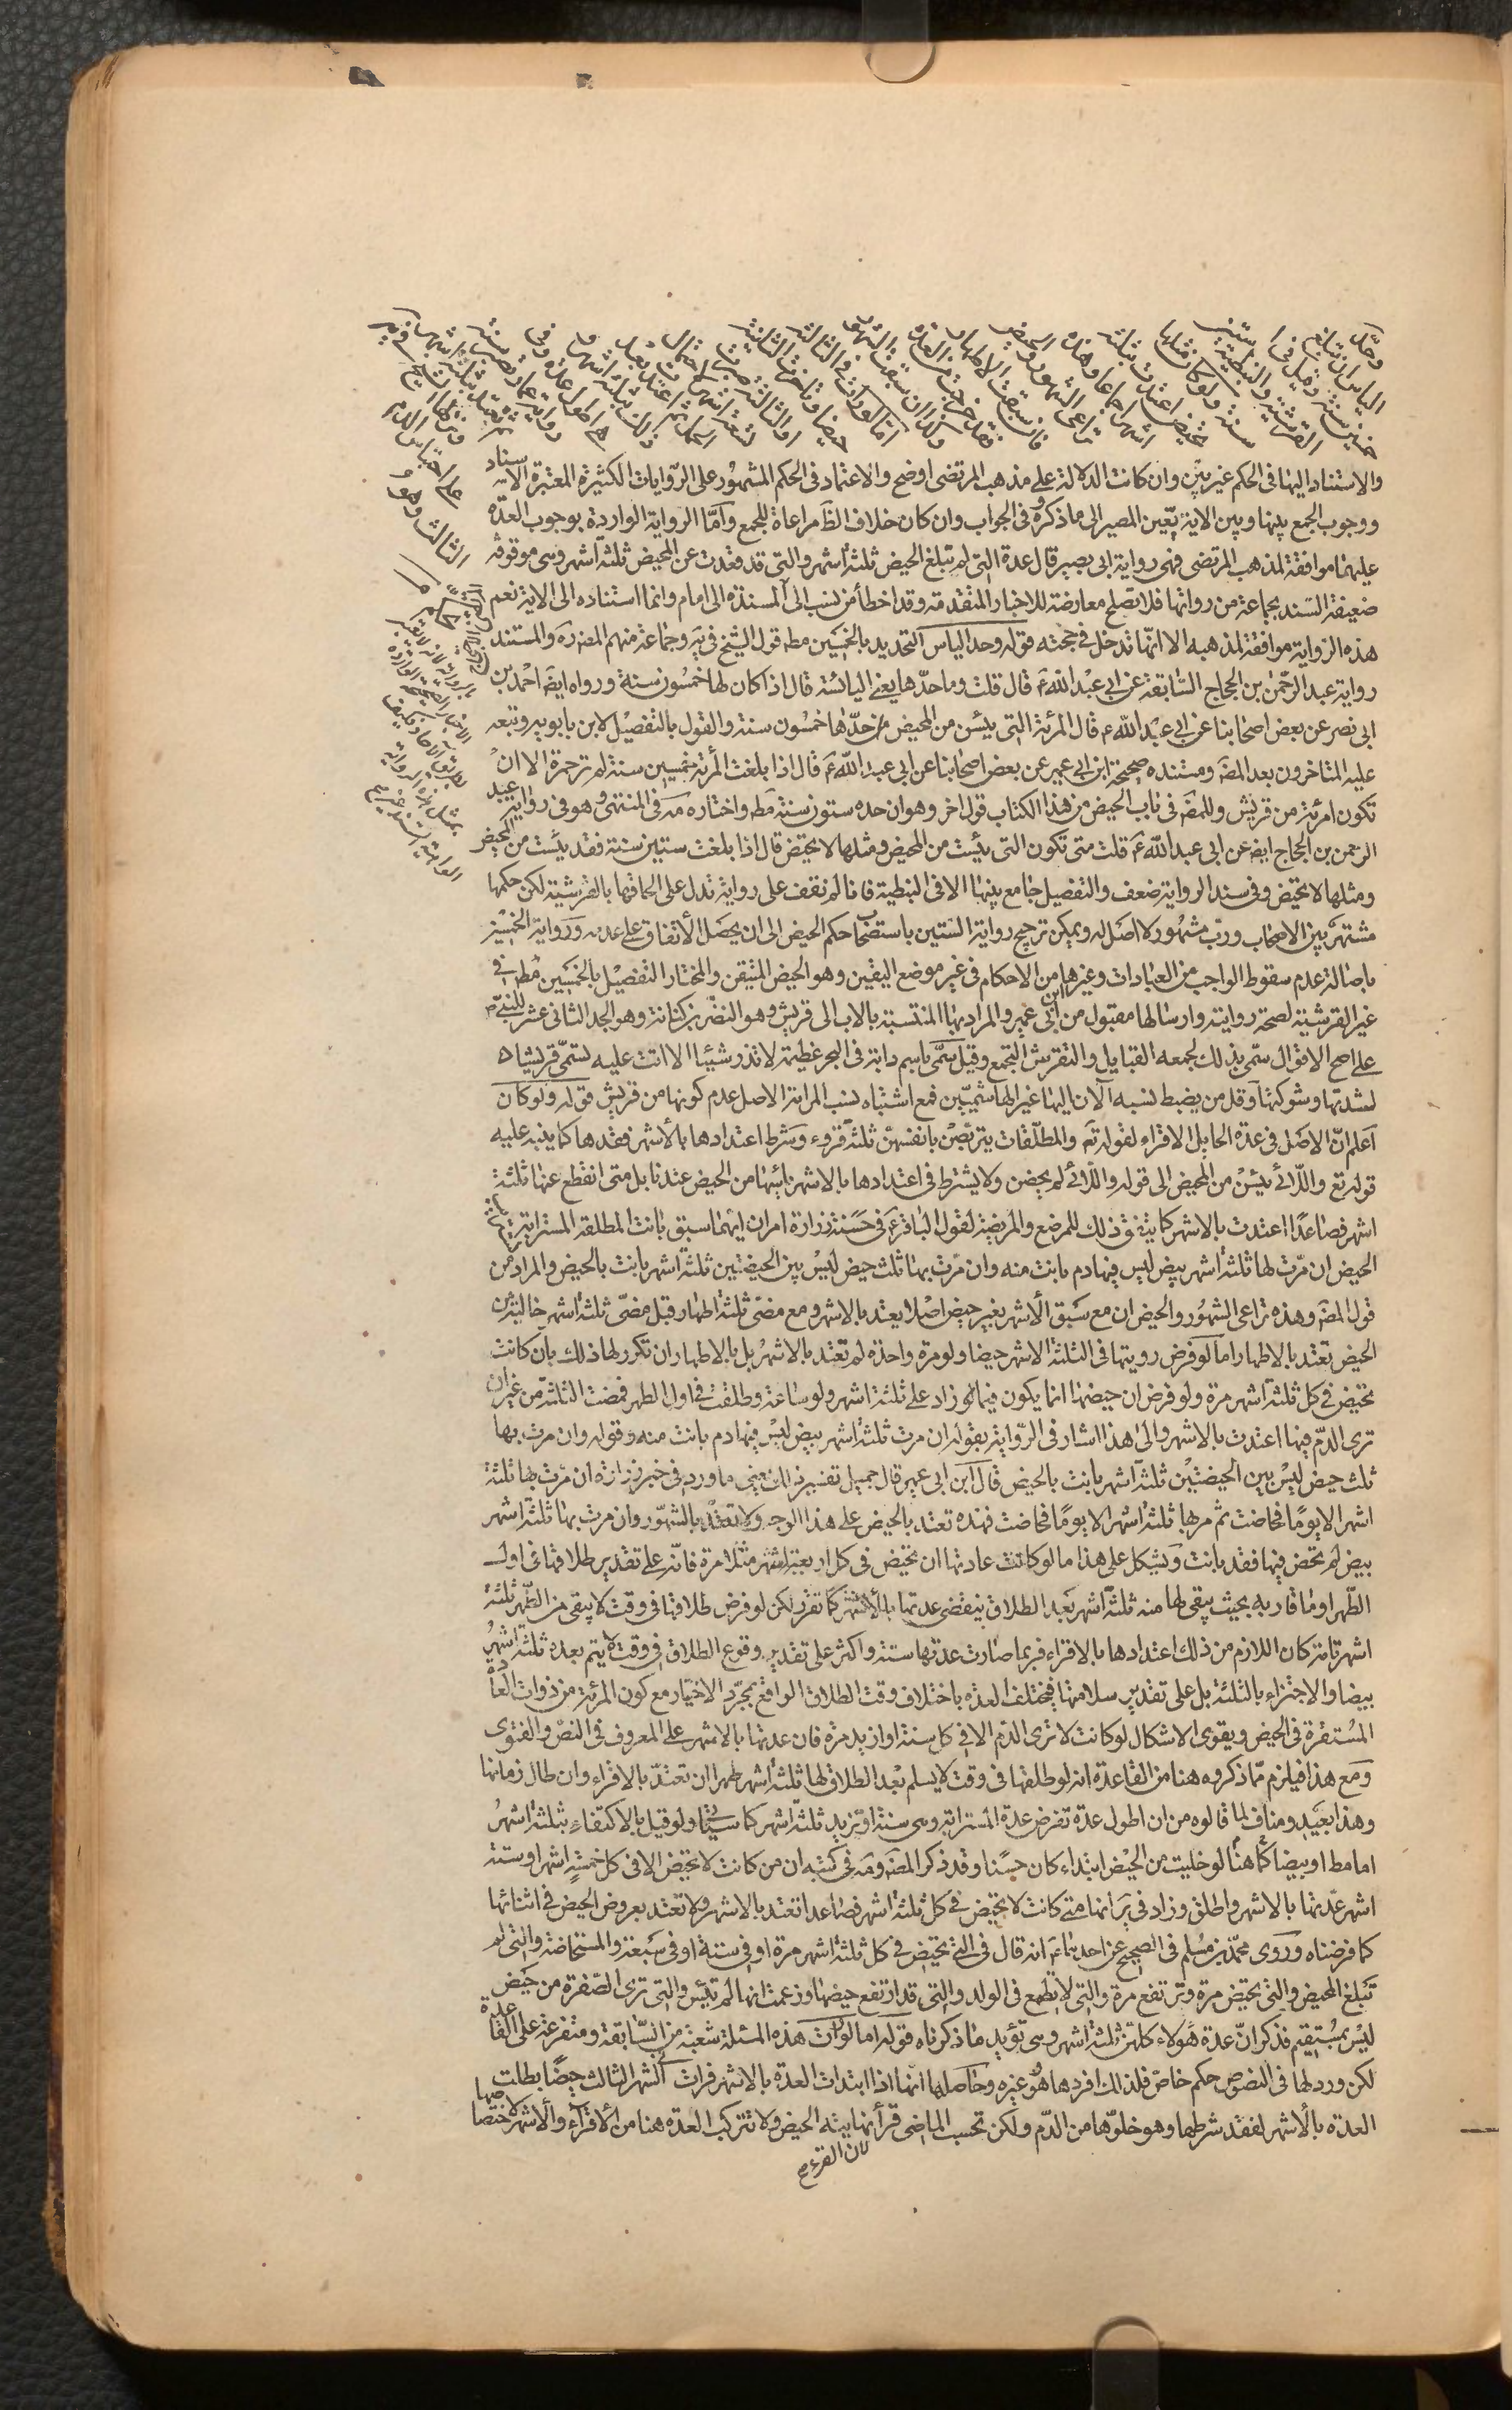 وحدّ
الياس ان تبلغ
خمسين سنة وقيل في
القرشية والنبطية ستين
سنة ولو كان مثلها
تحيض اعتدت بثلثة
اشهر اجماعا وهذه
تراعى الشهور والحيض
فان سبقت الاطهار
فقد خرجت من العدة
وكذا ان سبقت الشهور
اما لو رات في الثالث
حيضا وتاخرت الثانية
او الثالثة صبرت
تسعة اشهر لاحتمال
الحمل ثم اعتدت بعد
ذلك بثلثة اشهر
وهي اطول عدة وفي
رواية عمار تصبر سنة
ثم تعتد بثلثة اشهر
ونزلها الشيخ في يه
على احتباس الدم
الثالث وهو
تحكم
والاستناد اليها في الحكم غير بيّن وان كانت الدلالة على مذهب المرتضى اوضح والاعتماد في الحكم المشهور على الروايات الكثيرة المعتبرة الاسناد
ووجوب الجمع بينها وبين الاية يعين المصير الى ما ذكروه في الجواب وان كان خلاف الظ مراعاة للجمع وامّا الرواية الواردة بوجوب العدة
عليهما موافقة لمذهب المرتضى فهي رواية ابى بصير قال عدة التى لم تبلغ الحيض ثلثة اشهر والتى قد قعدت عن المحيض ثلثة اشهر وهى موقوفة
ضعيفة السند بجماعة من رواتها فلا تصلح معارضة للاخبار المتقدمة وقد اخطأ من نسب الى المسندة الى امام وانما استناده الى الاية نعم
هذه الرواية موافقة لمذهبه الا انها تدخل في حجته قوله وحد الياس التحديد بالخمسين مطه قول الشيخ في يه وجماعة منهم المص ره والمستند
رواية عبد الرحمن بن الحجاج السابقة عن ابى عبد الله ع قال قلت وما حدها يعنى اليائسة قال اذا كان لها خمسون سنة ورواه ايضه احمد بن
ابى نصر عن بعض اصحابنا عن ابى عبد الله ع قال المرئة التى يئسن من المحيض حدّها خمسون سنة والقول بالتفصيل لابن بابويه وتبعه
عليه المتاخرون بعد المص ومستنده صحيحة ابن ابى عمير عن بعض اصحابنا عن ابى عبد الله ع قال اذا بلغت المرئة خمسين سنة لم تر حمرة الا ان
تكون امرئة من قريش وللمص في باب الحيض من هذا الكتاب قول اخر وهو ان حده ستون سنة مطه واختاره مه في المنتهى وهو في رواية عبد
الرحمن بن الحجاج ايضه عن ابى عبد الله ع قلت متى تكون التى يئست من المحيض ومثلها لا تحيض قال اذا بلغت ستين سنة فقد يئست من المحيض
ومثلها لا تحيض وفي سند الرواية ضعف والتفصيل جامع بينها الا في النبطية فانا لم نقف على رواية تدل على الحاقها بالقرشية لكن حكمها
مشتهر بين الاصحاب ورب مشهور لا اصل له ويمكن ترجيح رواية الستين باستصحاب حكم الحيض الى ان يحصل الاتفاق على عدمه ورواية الخمسين
باصالة عدم سقوط الواجب من العبادات وغيرها من الاحكام في غير موضع اليقين وهو الحيض المتيقن والمختار التفصيل بالخمسين مطه في
غير القرشية لصحة روايته وارسالها مقبول من ابن ابى عمير والمراد بها المنتسبة بالاب الى قريش وهو النضر بن كنانة وهو الجد الثانى عشر للنبي ص
على اصح الاقوال سمّى بذلك لجمعه القبايل والتقرش التجمع وقيل سمّى باسم دابة في البحر عظيمة لا تذر شيئا الا اتت عليه تسمّى قريشا
لشدتها وشوكتها وقل من يضبط نسبه الآن اليها غير الهاشميين فمع اشتباه نسب المراة الاصل عدم كونها من قريش قوله ولو كان
اعلم انّ الاصل في عدة الحايل الاقراء لقوله تع والمطلّقات يتربصن بانفسهن ثلثة قروء وشرط اعتدادها بالاشهر فقدها كما ينبه عليه
قوله تع واللائى يئسن من المحيض الى قوله واللائى لم يحضن ولا يشترط في اعتدادها بالاشهر يأسها من الحيض عندنا بل متى انقطع عنها ثلثة
اشهر فصاعدا اعتدت بالاشهر كما يتفق ذلك للمرضع والمريضة لقول الباقر ع في حسنة زرارة امران ايهما سبق بانت المطلقة المسترابة تستريب
الحيض ان مرّت لها ثلثة اشهر بيض ليس فيها دم بانت منه وان مرّت بها ثلث حيض ليس بين الحيضتين ثلثة اشهر بانت بالحيض والمراد من
قول المص وهذه تراعى الشهور والحيض ان مع سبق الاشهر بغير حيض اصلا يعتد بالاشهر ومع مضى ثلثة اطهار قبل مضى ثلثة اشهر خالية من
الحيض تعتد بالاطهار اما لو فرض رويتها في الثلثة الاشهر حيضا ولو مرة واحدة لم تعتد بالاشهر بل بالاطهار ان تكرر لها ذلك بان كانت
تحيض في كل ثلثة اشهر مرة ولو فرض ان حيضها انما يكون فيما لو زاد على ثلثة اشهر ولو ساعة وطلقت في اول الطهر فمضت الثلثة من غير ان
ترى الدم فيها اعتدت بالاشهر والى هذا اشار في الرواية بقوله ان مرت ثلثة اشهر بيض ليس فيها دم بانت منه وقوله وان مرت بها
ثلث حيض ليس بين الحيضتين ثلثة اشهر بانت بالحيض قال ابن ابى عمير قال جميل تفسير ذلك يعنى ما ورد في خبر زرارة ان مرّت بها ثلثة
اشهر الا يومًا فحاضت ثم مر بها ثلثة اشهر الا يومًا فحاضت فهذه تعتد بالحيض على هذا الوجه ولا تعتد بالشهور وان مرت بها ثلثة اشهر
بيض لم تحض فيها فقد بانت ويشكل على هذا ما لو كانت عادتها ان تحيض في كل اربعة اشهر مثلا مرة فانّه على تقدير طلاقها في اول
الطهر او ما قاربه بحيث يبقى لها منه ثلثة اشهر بعد الطلاق ينقضى عدتها بالاشهر كما تقرر لكن لو فرض طلاقها في وقت لا يبقى من الطهر ثلثة
اشهر تامة كان اللازم من ذلك اعتدادها بالاقراء فربما صارت عدتها سنة واكثر على تقدير وقوع الطلاق في وقت لا يتم بعده ثلثة اشهر
بيضا والاجتزاء بالثلثة بل على تقدير سلامتها فيختلف العدة باختلاف وقت الطلاق الواقع بمجرّد الاختيار مع كون المرئة من ذوات العادة
المستقرة في الحيض ويقوى الاشكال لو كانت لا ترى الدم الا في كل سنة او ازيد مرة فان عدتها بالاشهر على المعروف في النص والفتوى
ومع هذا فيلزم مما ذكروه هنا من القاعدة انه لو طلقها في وقت لا يسلم بعد الطلاق لها ثلثة اشهر طهرا ان تعتدّ بالاقراء وان طال زمانها
وهذا بعيد ومناف لما قالوه من ان اطول عدة تفرض عدة المسترابة وهى سنة او تزيد ثلثة اشهر كما سيأتى ولو قيل بالاكتفاء بثلثة اشهر
اما مطه او بيضا كما هنا لو خليت من الحيض ابتداء كان حسنا وقد ذكر المص ومه في كتبه ان من كانت لا تحيض الا في كل خمسة اشهر او ستة
اشهر عدّتها بالاشهر واطلق وزاد في ير انها متى كانت لا تحيض في كل ثلثة اشهر فصاعدا تعتد بالاشهر ولا تعتد بعروض الحيض في اثنائها
كما فرضناه وروى محمد بن مسلم في الصحيح عن احدهما ع انه قال في التى تحيض في كل ثلثة اشهر مرة او في ستة او في سبعة والمستحاضة والتى لم
تبلغ المحيض والتى تحيض مرة وترتفع مرة والتى لا تطمع في الولد والتى قد ارتفع حيضها وزعمت انها لم تيئس والتى ترى الصفرة من حيض
ليس بمستقيم فذكر انّ عدة هؤلاء كلهن ثلثة اشهر وهى تؤيد ما ذكرناه قوله اما لو رات هذه المسئلة شعبة من السابقة ومتفرعة على القاعدة
لكن ورد لها في النصوص حكم خاص فلذلك افردها هو وغيره وحاصلها انها اذا ابتدات العدة بالاشهر فرات في الشهر الثالث حيضا بطلت
العدة بالاشهر لفقد شرطها وهو خلوّها من الدم ولكن تحسب الماضى قرأ نهايته الحيض ولا تتركب العدة هنا من الاقراء والاشهر لاختصاصها
لان القرء